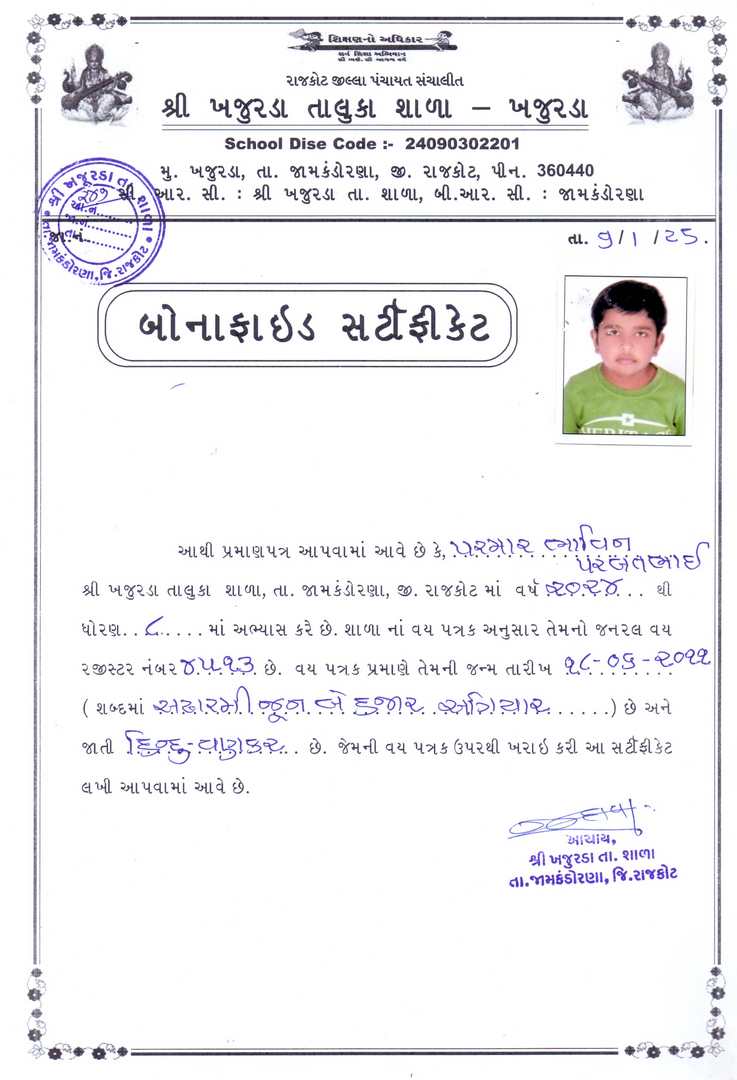 શિક્ષણનો અધિકાર
સર્વ શિક્ષા અભિયાન
રાજકોટ જીલ્લા પંચાયત સંચાલીત
શ્રી ખજુરડા તાલુકા શાળા – ખજુરડા
School Dise Code :- 24090302201
મુ. ખજુરડા, તા. જામકંડોરણા, જી. રાજકોટ, પીન. 360440
સી.આર. સી. : શ્રી ખજુરડા તા. શાળા, બી.આર. સી. : જામકંડોરણા
શ્રી ખજુરડા તા. શાળા
તા. જામકંડોરણા, જિ. રાજકોટ
તા. 9/1/25.
બોનાફાઇડ સર્ટીફીકેટ
આથી પ્રમાણપત્ર આપવામાં આવે છે કે, પરમાર ભાવિન
પરબતભાઈ
શ્રી ખજુરડા તાલુકા શાળા, તા. જામકંડોરણા, જી. રાજકોટ માં વર્ષ ૨૦૨૪... થી
ધોરણ..૮..... માં અભ્યાસ કરે છે. શાળા નાં વય પત્રક અનુસાર તેમનો જનરલ વય
રજીસ્ટર નંબર ૪૫૧૩. છે. વય પત્રક પ્રમાણે તેમની જન્મ તારીખ ૧૮-૦૬-૨૦૧૧
( શબ્દમાં અઢારમી જૂન બે હજાર અગિયાર......) છે અને
જાતી હિન્દુ-વણકર.. છે. જેમની વય પત્રક ઉપરથી ખરાઇ કરી આ સર્ટીફીકેટ
લખી આપવામાં આવે છે.
આચાર્ય,
શ્રી ખજુરડા તા. શાળા
તા.જામકંડોરણા, જિ.રાજકોટ